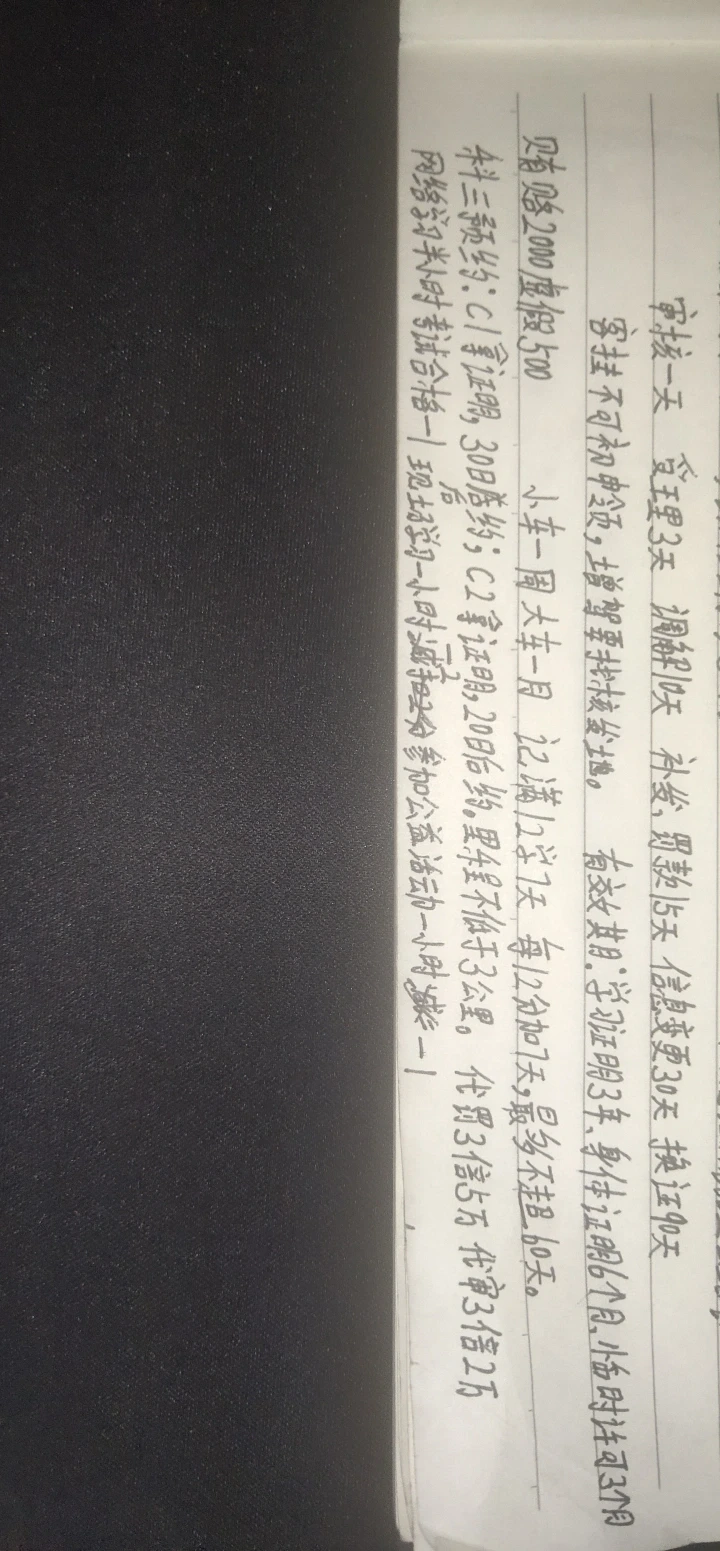 审核一天 受理3天 调解10天 补发、罚款15天 信息变更30天 换证90天
客挂不可初申领，增驾要找核发地。 有效期：学习证明3年、身体证明6个月、临时许可3个月
贿赂2000虚假500 小车一周大车一月 记满12学7天 每12分加7天，最多不超60天。
科三预约：C1拿证明，30日后约；C2拿证明，20日后约。里程不低于3公里。 代罚3倍5万 代审3倍2万
网络学习半小时考试合格-1 现场学习一小时-1 参加公益活动一小时-1